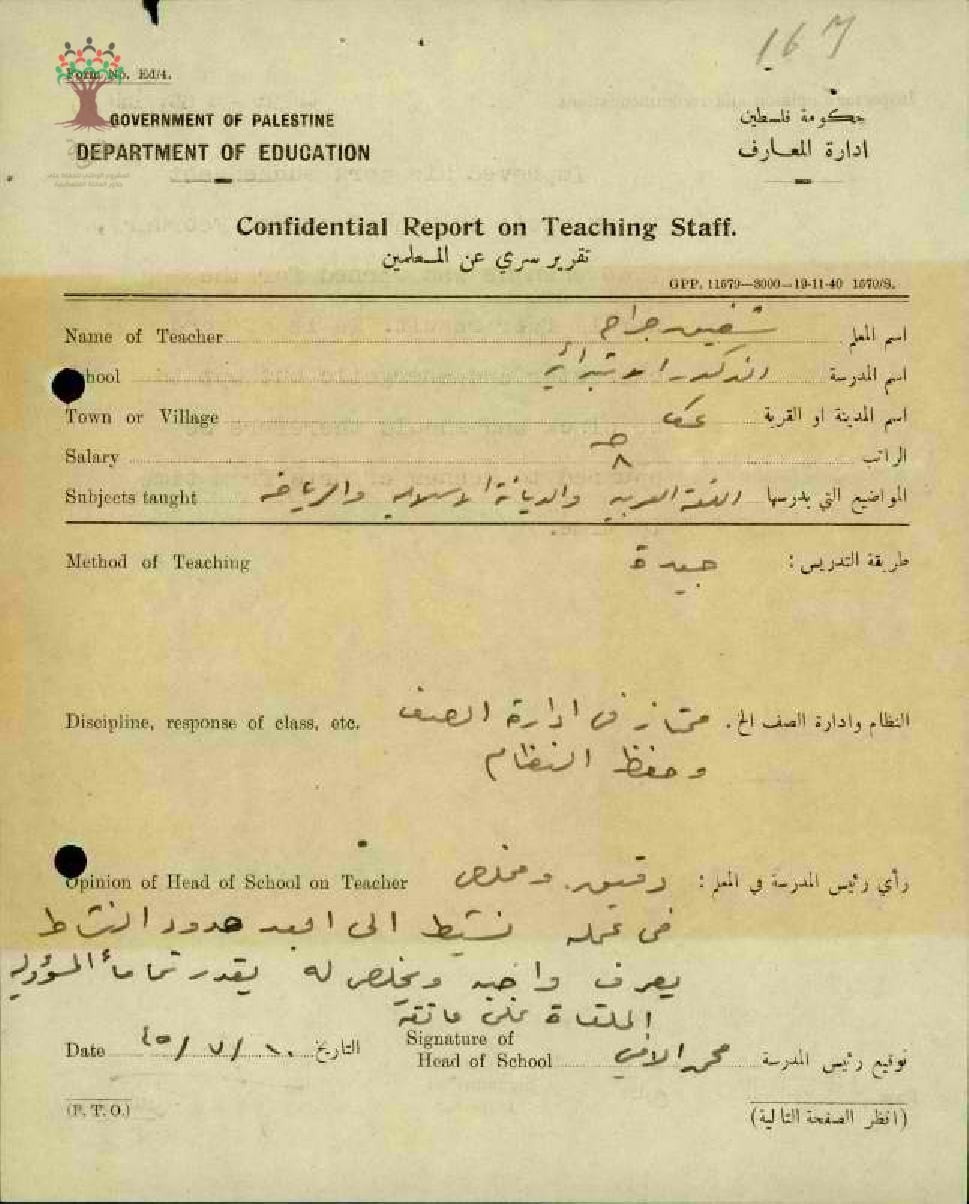 167
Form No. Ed/4.
GOVERNMENT OF PALESTINE
حكومة فلسطين
DEPARTMENT OF EDUCATION
ادارة المعارف
Confidential Report on Teaching Staff.
تقرير سري عن المعلمين
GPP. 11579—3000—19-11-40 1570/S.
Name of Teacher شفيق جراح اسم المعلم
School الذكور الابتدائية اسم المدرسة
Town or Village عكا اسم المدينة او القرية
Salary ٨ الراتب
Subjects taught اللغة العربية والديانة الاسلامية والرياضة المواضيع التي يدرسها
Method of Teaching جيدة طريقة التدريس :
Discipline, response of class, etc. ممتاز في ادارة الصف النظام وادارة الصف الخ .
وحفظ النظام
Opinion of Head of School on Teacher دقيق ومخلص رأي رئيس المدرسة في المعلم :
في عمله نشيط الى ابعد حدود النشاط
يعرف واجبه ويخلص له يقدر تماماً المسؤولية
الملقاة على عاتقه
Date ١٠/٧/٤٥ التاريخ Signature of Head of School محمد توقيع رئيس المدرسة
(P. T. O.)
(انظر الصفحة التالية)